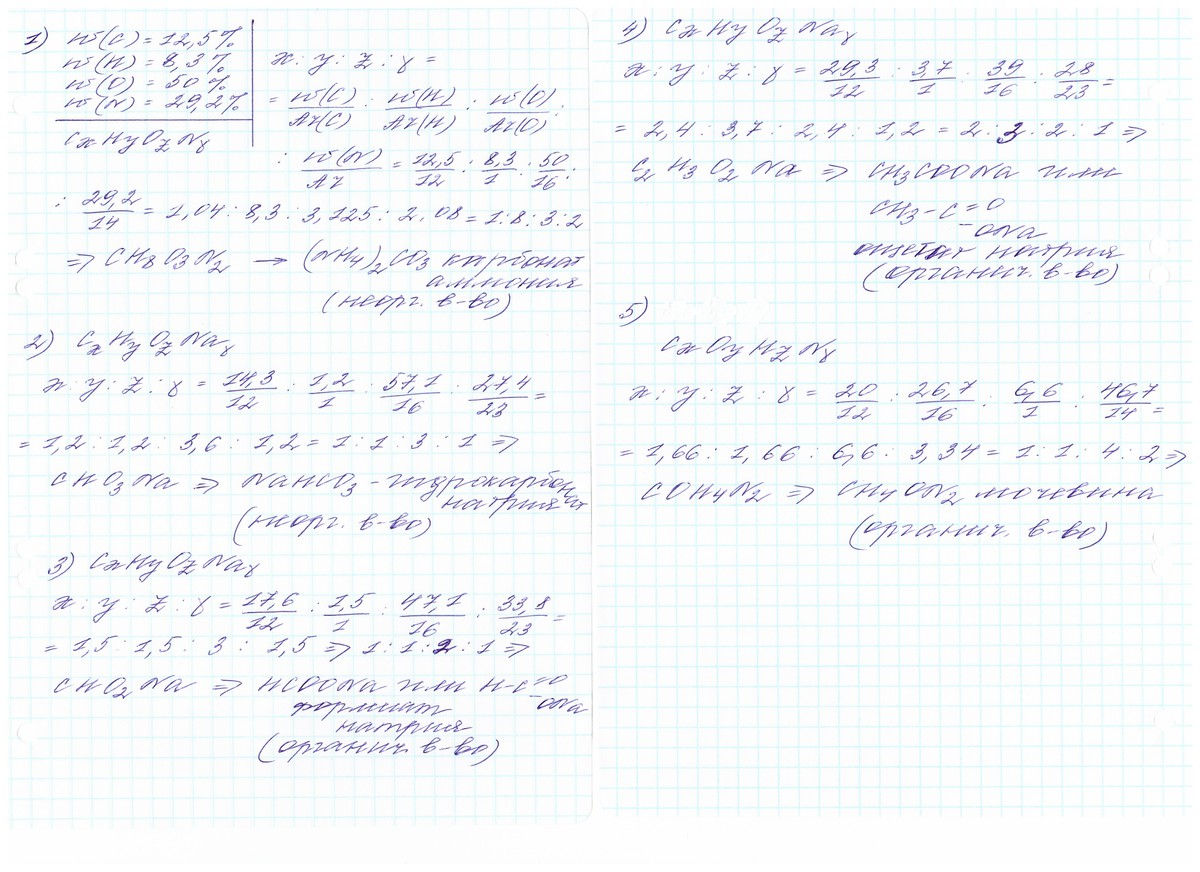 1) w(C) = 12,5%
w(H) = 8,3%
w(O) = 50%
w(N) = 29,2%
CxHyOzNγ
x : y : z : γ =
= w(C)/Ar(C) : w(H)/Ar(H) : w(O)/Ar(O) :
: w(N)/Ar = 12,5/12 : 8,3/1 : 50/16 :
: 29,2/14 = 1,04 : 8,3 : 3,125 : 2.08 = 1:8:3:2
=> CH8O3N2 → (NH4)2CO3 карбонат
аммония
(неорг. в-во)
2) CxHyOzNaγ
x : y : z : γ = 14,3/12 : 1,2/1 : 57,1/16 : 27,4/23 =
= 1,2 : 1,2 : 3,6 : 1,2 = 1 : 1 : 3 : 1 =>
CHO3Na => NaHCO3 - гидрокарбонат
натрия
(неорг. в-во)
3) CxHyOzNaγ
x : y : z : γ = 17,6/12 : 1,5/1 : 47,1/16 : 33,8/23 =
= 1,5 : 1,5 : 3 : 1,5 => 1 : 1 : 2 : 1 =>
CHO2Na => HCOONa или H-C=O
-ONa
формиат
натрия
(органич. в-во)
4) CxHyOzNaγ
x : y : z : γ = 29,3/12 : 3,7/1 : 39/16 : 28/23 =
= 2,4 : 3,7 : 2,4 : 1,2 = 2 : 3 : 2 : 1 =>
C2H3O2Na => CH3COONa или
CH3-C=O
-ONa
ацетат натрия
(органич. в-во)
5)
CxOyHzNγ
x : y : z : γ = 20/12 : 26,7/16 : 6,6/1 : 46,7/14 =
= 1,66 : 1,66 : 6,6 : 3,34 = 1 : 1 : 4 : 2 =>
COH4N2 => CH4ON2 мочевина
(органич. в-во)